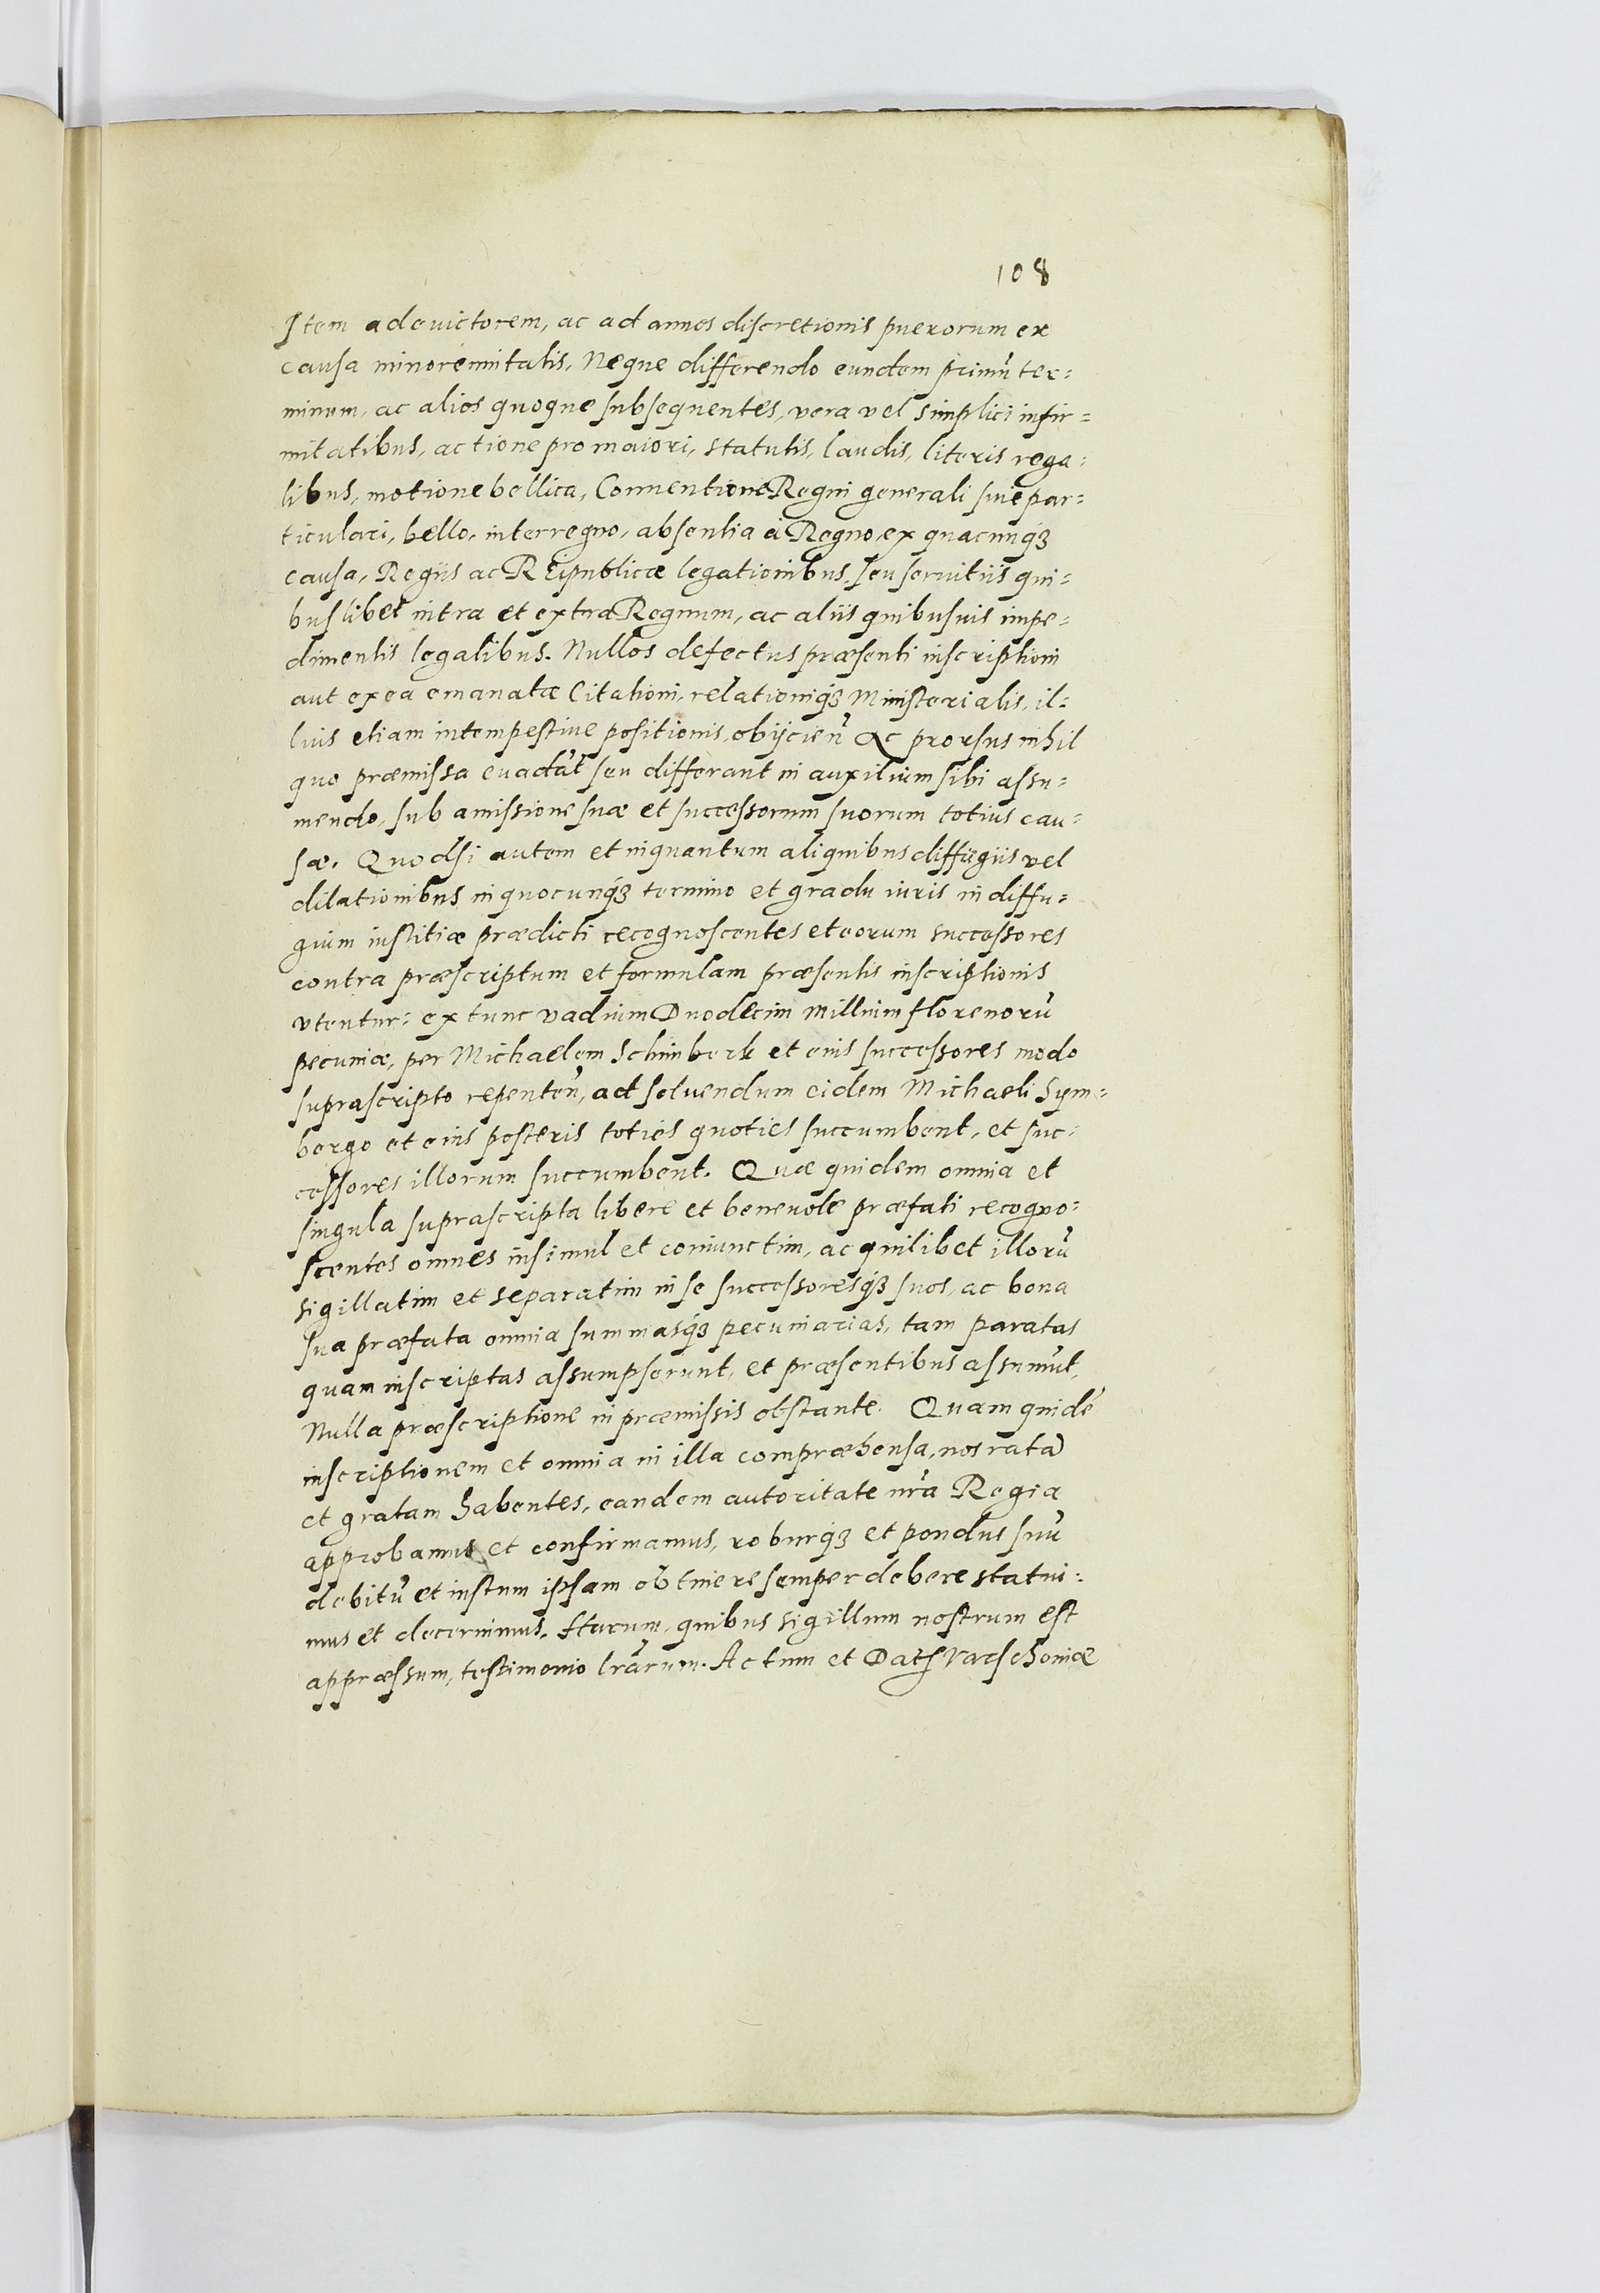 108
Item ad euictorem, ac ad annos discretionis puerorum ex
causa minorennitatis, Neque differendo eundem primũ ter=
minum, ac alios quoque subsequentes, vera vel simplici infir=
mitatibus, actione pro maiori, statutis, laudis, literis rega=
libus, motione bellica, Conuentione Regni generali siue par=
ticulari, bello, interregno, absentia à Regno, ex quacunq́ꝫ
causa, Regiis ac Reipublicæ legationibus, seu seruitiis qui=
buslibet intra et extra Regnum, ac aliis quibusuis impe=
dimentis legalibus. Nullos defectus præsenti inscriptioni
aut ex ea emanatæ Citationi, relationiq́ꝫ Ministerialis, il=
lius etiam intempestiue positionis, obijcieñ Ac prorsus nihil
quo præmissa euadãt seu differant in auxilium sibi assu=
mendo, sub amissione suæ et successorum suorum totius cau=
sæ. Quodsi autem et inquantum aliquibus diffugiis vel
dilationibus in quocunq́ꝫ termino et gradu iuris in diffu=
gium iustitiæ prædicti recognoscentes et eorum successores
contra præscriptum et formulam præsentis inscriptionis
vtentur: ex tunc vadium Duodecim Millium florenorũ
pecuniæ, per Michaelem Schimberk et eius successores modo
suprascripto repenteñ, ad soluendum eidem Michaeli Sym=
bergo et eius posteris toties quoties succumbent, et suc=
cessores illorum succumbent. Quæ quidem omnia et
singula suprascripta libere et beneuole præfati recogno=
scentes omnes insimul et coniunctim, ac quilibet illorũ
sigillatim et separatim in se successoresq́ꝫ suos, ac bona
sua præfata omnia summasq́ꝫ pecuniarias, tam paratas
quam inscriptas assumpserunt, et præsentibus assumũt,
Nulla præscriptione in præmissis obstante. Quam quidẽ
inscriptionem et omnia in illa compræhensa, nos ratam
et gratam habentes, eandem autoritate nr̃a Regia
approbamus et confirmamus, roburq́ꝫ et pondus suũ
debitũ et iustum ipsam obtinere semper debere statui=
mus et decernimus. Harum, quibus sigillum nostrum est
appræssum, testimonio lr̃arum. Actum et Datꝭ Varschouiæ